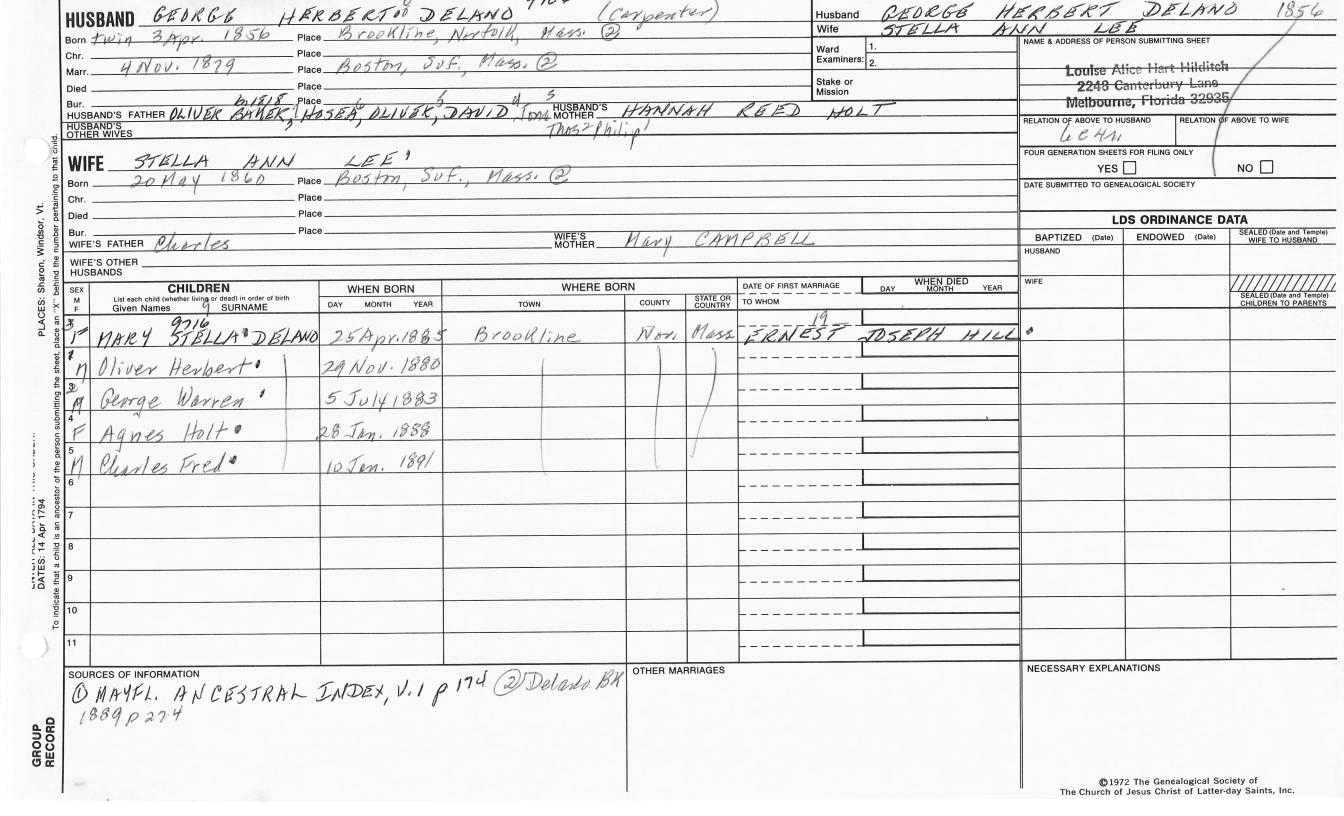 HUSBAND GEORGE HERBERT DELANO (Carpenter)
Born twin 3 Apr. 1856 Place Brookline, Norfolk, Mass. ②
Chr. Place
Marr. 4 Nov. 1879 Place Boston, Suf., Mass. ②
Died Place
Bur. Place
b1818
HUSBAND'S FATHER OLIVER BAKER, HOSEA, OLIVER, DAVID HUSBAND'S MOTHER HANNAH REED HOLT
HUSBAND'S OTHER WIVES Thos² Philip¹
WIFE STELLA ANN LEE
Born 20 May 1860 Place Boston, Suf., Mass. ②
Chr. Place
Died Place
Bur. Place
WIFE'S FATHER Charles WIFE'S MOTHER Mary CAMPBELL
WIFE'S OTHER HUSBANDS
Husband GEORGE HERBERT DELANO 1856
Wife STELLA ANN LEE
Ward Examiners: 1. 2.
Stake or Mission
NAME & ADDRESS OF PERSON SUBMITTING SHEET
Louise Alice Hart Hilditch
2248 Canterbury Lane
Melbourne, Florida 32935
RELATION OF ABOVE TO HUSBAND RELATION OF ABOVE TO WIFE
FOUR GENERATION SHEETS FOR FILING ONLY
YES NO
DATE SUBMITTED TO GENEALOGICAL SOCIETY
LDS ORDINANCE DATA
BAPTIZED (Date) ENDOWED (Date) SEALED (Date and Temple) WIFE TO HUSBAND
HUSBAND
WIFE
SEALED (Date and Temple) CHILDREN TO PARENTS
SEX M F CHILDREN WHEN BORN WHERE BORN DATE OF FIRST MARRIAGE WHEN DIED
List each child (whether living or dead) in order of birth
Given Names SURNAME DAY MONTH YEAR TOWN COUNTY STATE OR COUNTRY TO WHOM DAY MONTH YEAR
9716 19
3 F MARY STELLA DELANO 25 Apr. 1885 Brookline Nor. Mass ERNEST JOSEPH HILL
1 M Oliver Herbert 29 Nov. 1880
2 M George Warren 5 July 1883
4 F Agnes Holt 28 Jan. 1888
5 M Charles Fred 10 Jan. 1891
6
7
8
9
10
11
SOURCES OF INFORMATION
① MAYFL. ANCESTRAL INDEX, V.1 p 174 ② Delano BK
1889 p 274
OTHER MARRIAGES
NECESSARY EXPLANATIONS
©1972 The Genealogical Society of
The Church of Jesus Christ of Latter-day Saints, Inc.
PLACES: Sharon, Windsor, Vt.
DATES: 14 Apr 1794
To indicate that a child is an ancestor of the person submitting the sheet, place an "X" behind the number pertaining to that child.
GROUP RECORD